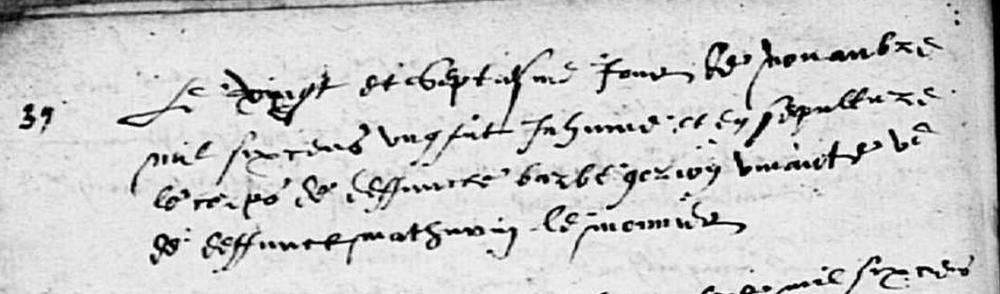 39
Le vingt et septiesme Jour de Novanbre
mil six cens ung fut Inhumé et en sepulture
le corps de deffuncte barbe vivante ve
de deffunct mathurin le monnier
mil six cens